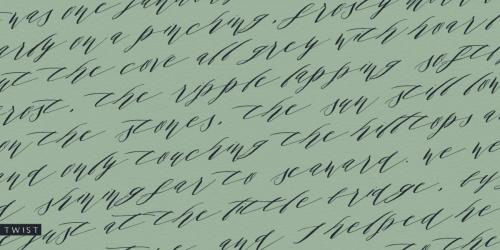 was one January
arly on a pinching, frosty mor
at the cove all grey with hoar
rost, the ripple lapping soft
on the stones, the sun still low
nd only touching the hilltops a
d shining far to seaward. we we
just at the little bridge, by
the and I helped he
TWIST